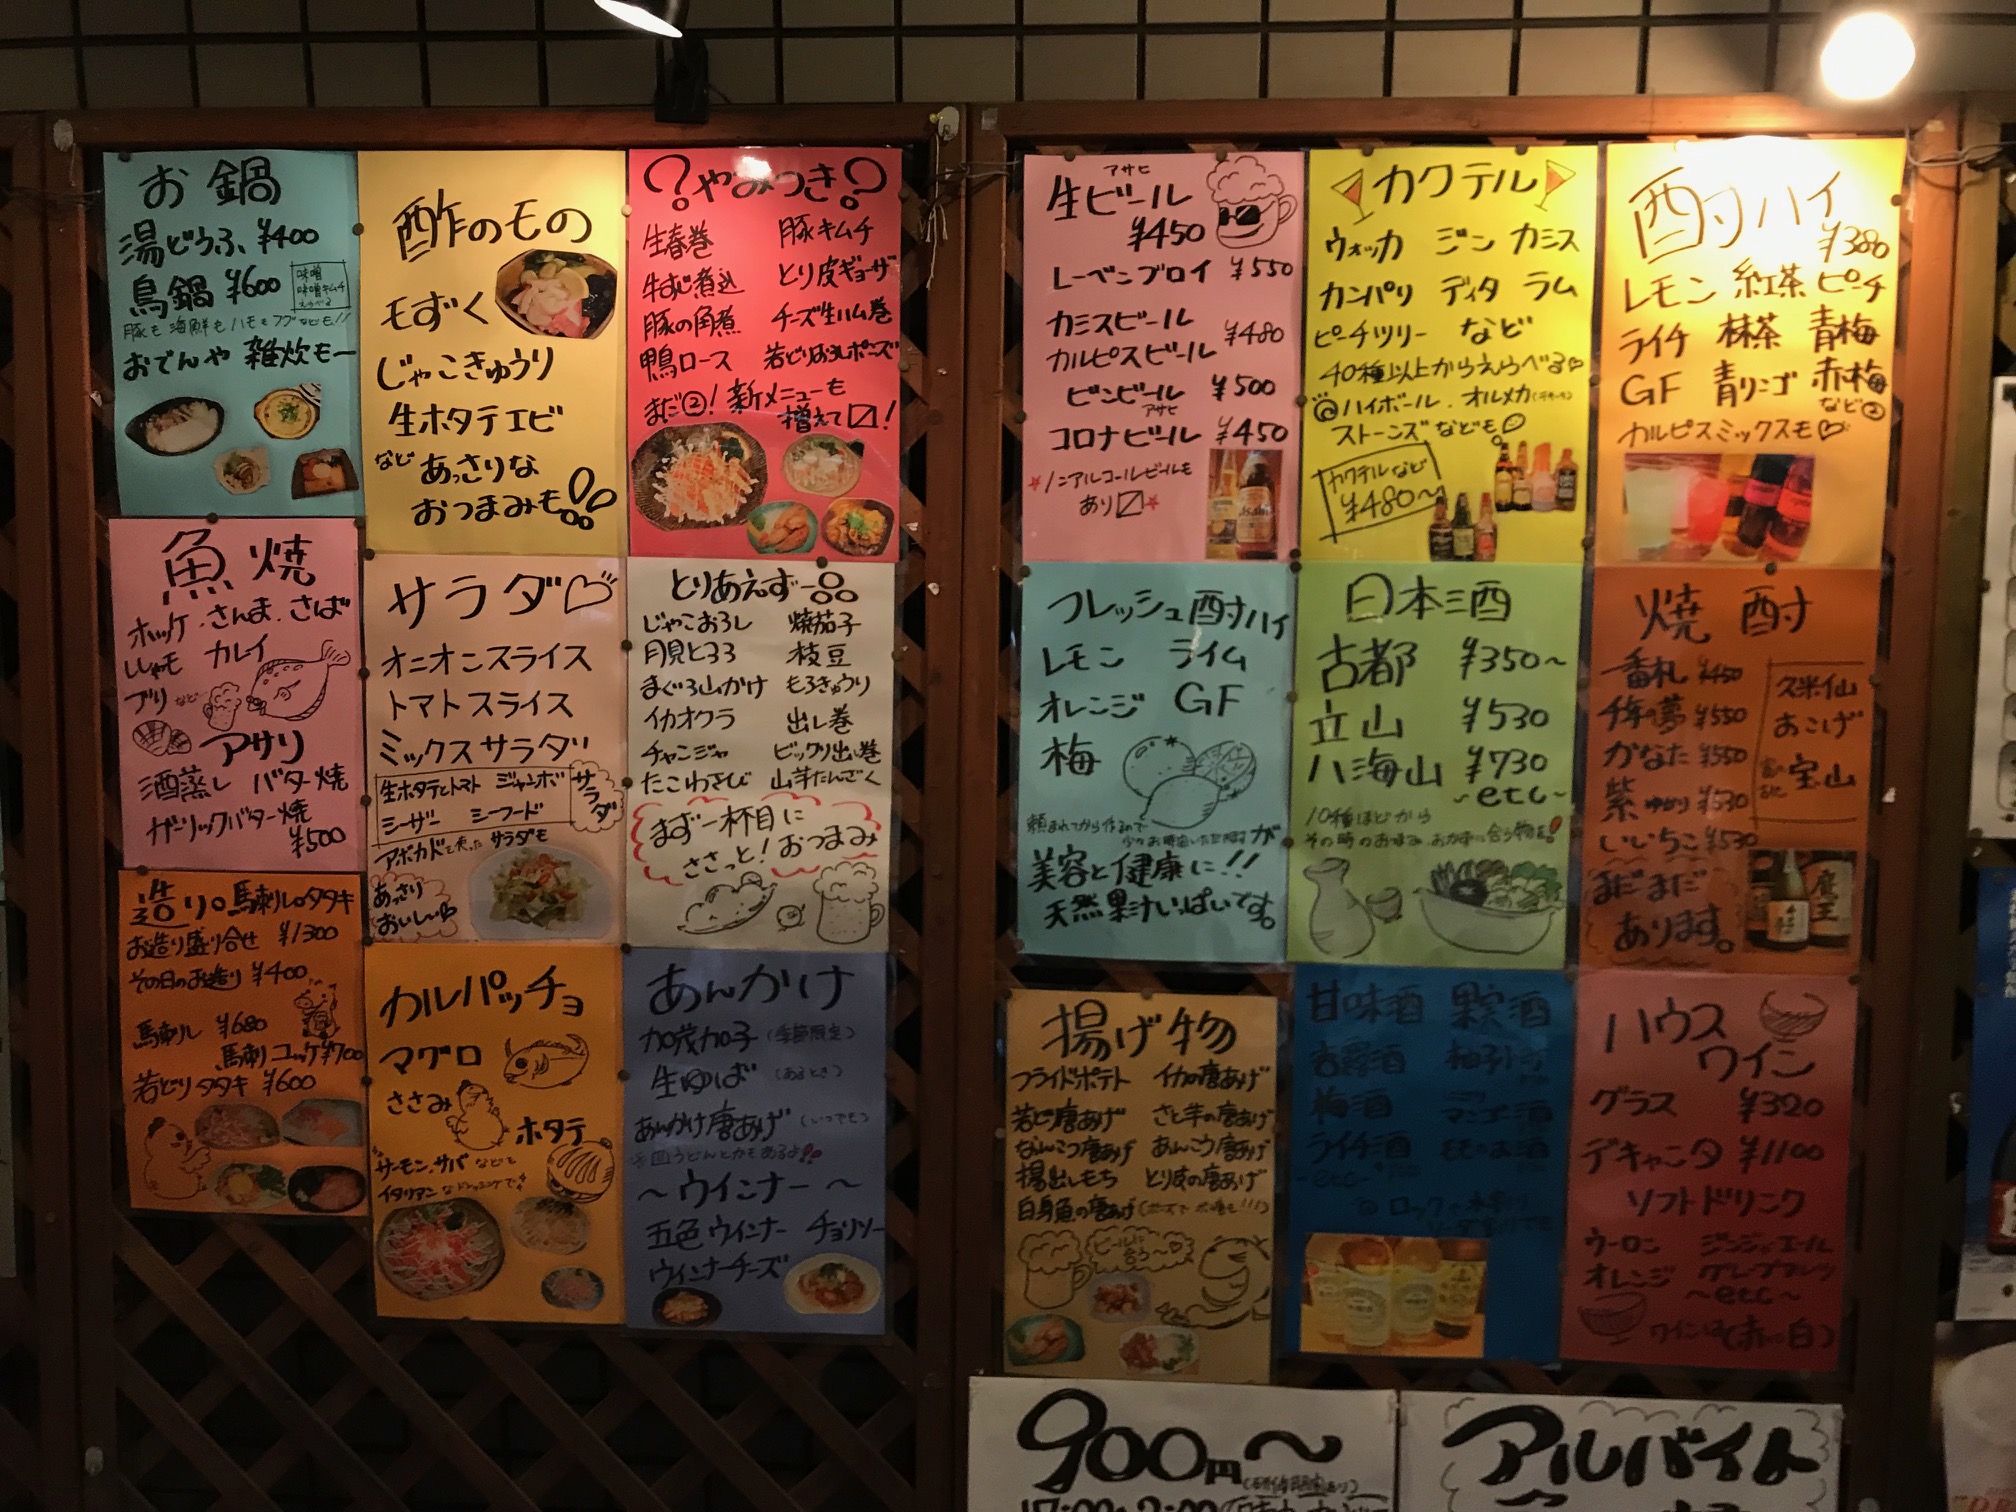 お鍋
湯どうふ ¥400
鳥鍋 ¥600
味噌
味噌キムチ
えらべる
豚も海鮮もハモもフグなども!!
おでんや雑炊も一
酢のもの
モずく
じゃこきゅうり
生ホタテエビ
など あっさりな
おつまみも!!
?やみつき?
生春巻 豚キムチ
牛すじ煮込 とり皮ギョーザ
豚の角煮 チーズ生ハム巻
鴨ロース 若どりおろしポンズ
まだ②!新メニューも
増えて〼!
魚焼
ホッケ・さんま・さば
ししゃモ カレイ
ブリ など
アサリ
酒蒸し バター焼
ガーリックバター焼
¥500
サラダ♡
オニオンスライス
トマトスライス
ミックスサラダ
生ホタテとトマト ジャンボ
シーザー シーフード
サラダ
アボカドを使ったサラダモ
あっさり
おいし〜
とりあえず一品
じゃこおろし 焼茄子
月見とろろ 枝豆
まぐろ山かけ もろきゅうり
イカオクラ 出し巻
チャンジャ ビックリ出し巻
たこわさび 山芋たんざく
まず一杯目に
ささっと!おつまみ
造り。馬刺し。タタキ
お造り盛り合せ ¥1300
その日のお造り ¥400
馬刺し ¥680
馬刺ユッケ¥700
若どりタタキ ¥600
カルパッチョ
マグロ
ささみ
ホタテ
サーモン、サバ なども
イタリアン
あんかけ
加茂加子 (季節限定)
生ゆば (あるとき)
あんかけ唐あげ (いつでも)
うどんとかもあるよ!!
〜ウインナー〜
五色ウインナー チョリソー
ウインナーチーズ
アサヒ
生ビール
¥450
レーベンブロイ ¥550
カミスビール
カルピスビール ¥480
ビンビール ¥500
アサヒ
コロナビール ¥450
★ノンアルコールビールも
あり〼★
カクテル
ウォッカ ジン カミス
カンパリ ディタ ラム
ピーチツリー など
40種以上からえらべる♡
@ハイボール.オルメカ(テキーラ)
ストーンズなども
カクテルなど
¥480〜
酎ハイ
¥380
レモン 紅茶 ピーチ
ライチ 抹茶 青梅
GF 青リンゴ 赤梅
など②
カルピスミックスモ♡
フレッシュ酎ハイ
レモン ライム
オレンジ GF
梅
頼まれてから作るので
少々お時間いただきますが
美容と健康に!!
天然果汁いっぱいです。
日本酒
古都 ¥350〜
立山 ¥530
八海山 ¥730
〜etc〜
10種ほどから
その時のおすすめ
焼酎
一番札 ¥450
千年の夢 ¥550
かなた ¥550
紫 ゆかり ¥530
いいちこ ¥530
久米仙
あこげ
宝山
まだまだ
あります。
揚げ物
フライドポテト イカの唐あげ
若どり唐あげ さと芋の唐あげ
なんこつ唐あげ あんこう唐あげ
揚出しもち とり皮の唐あげ
白身魚の唐あげ
ビールに
合う〜♡
甘味酒 果実酒
杏露酒
梅酒 マンゴー酒
ライチ酒 ももの酒
etc
ハウス
ワイン
グラス ¥320
デキャンタ ¥1100
ソフトドリンク
ウーロン ジンジャエール
オレンジ グレープフルーツ
〜etc〜
ワインは(赤・白)
900円〜
(研修期間あり)
アルバイト